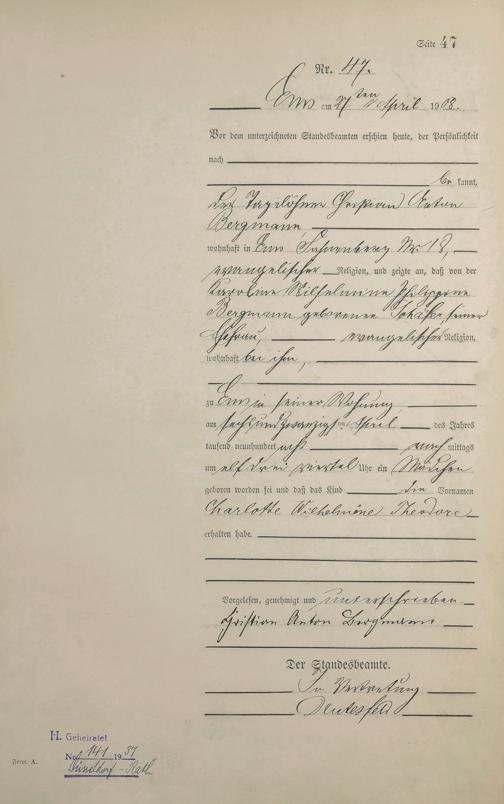 Seite 47
Nr. 47.
Ems am 27ten April 1908.
Vor dem unterzeichneten Standesbeamten erschien heute, der Persönlichkeit
nach
be kannt,
der Tagelöhner Christian Anton
Bergmann
wohnhaft in Ems, Nr. 18,
evangelischer Religion, und zeigte an, daß von der
Karoline Wilhelmine Philippine
Bergmann geborenen Schäfer, seiner
Ehefrau, evangelischer Religion,
wohnhaft bei ihm,
zu Ems in seiner Wohnung,
am sechsundzwanzigsten April des Jahres
tausend neunhundert acht nach mittags
um elf drei viertel Uhr ein Mädchen
geboren worden sei und daß das Kind die Vornamen
Charlotte Wilhelmine Theodore
erhalten habe.
Vorgelesen, genehmigt und unterschrieben
Christian Anton Bergmann
Der Standesbeamte.
In Vertretung
H. Geheiratet
Nr. 141 1937
Düsseldorf-Rath
Form. A.